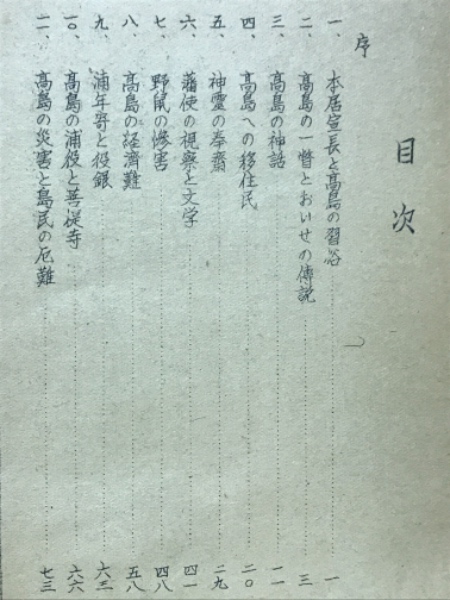 目次
序
一、本居宣長と高島の習俗 一
二、高島の一瞥とおいせの傳説 三
三、高島の神話 一一
四、高島への移住民 二〇
五、神霊の奉齋 二九
六、藩使の視察と文学 四一
七、野鼠の惨害 四八
八、高島の経済難 五八
九、浦年寄と役銀 六三
一〇、高島の浦役と菩提寺 六六
一一、高島の災害と島民の厄難 七三